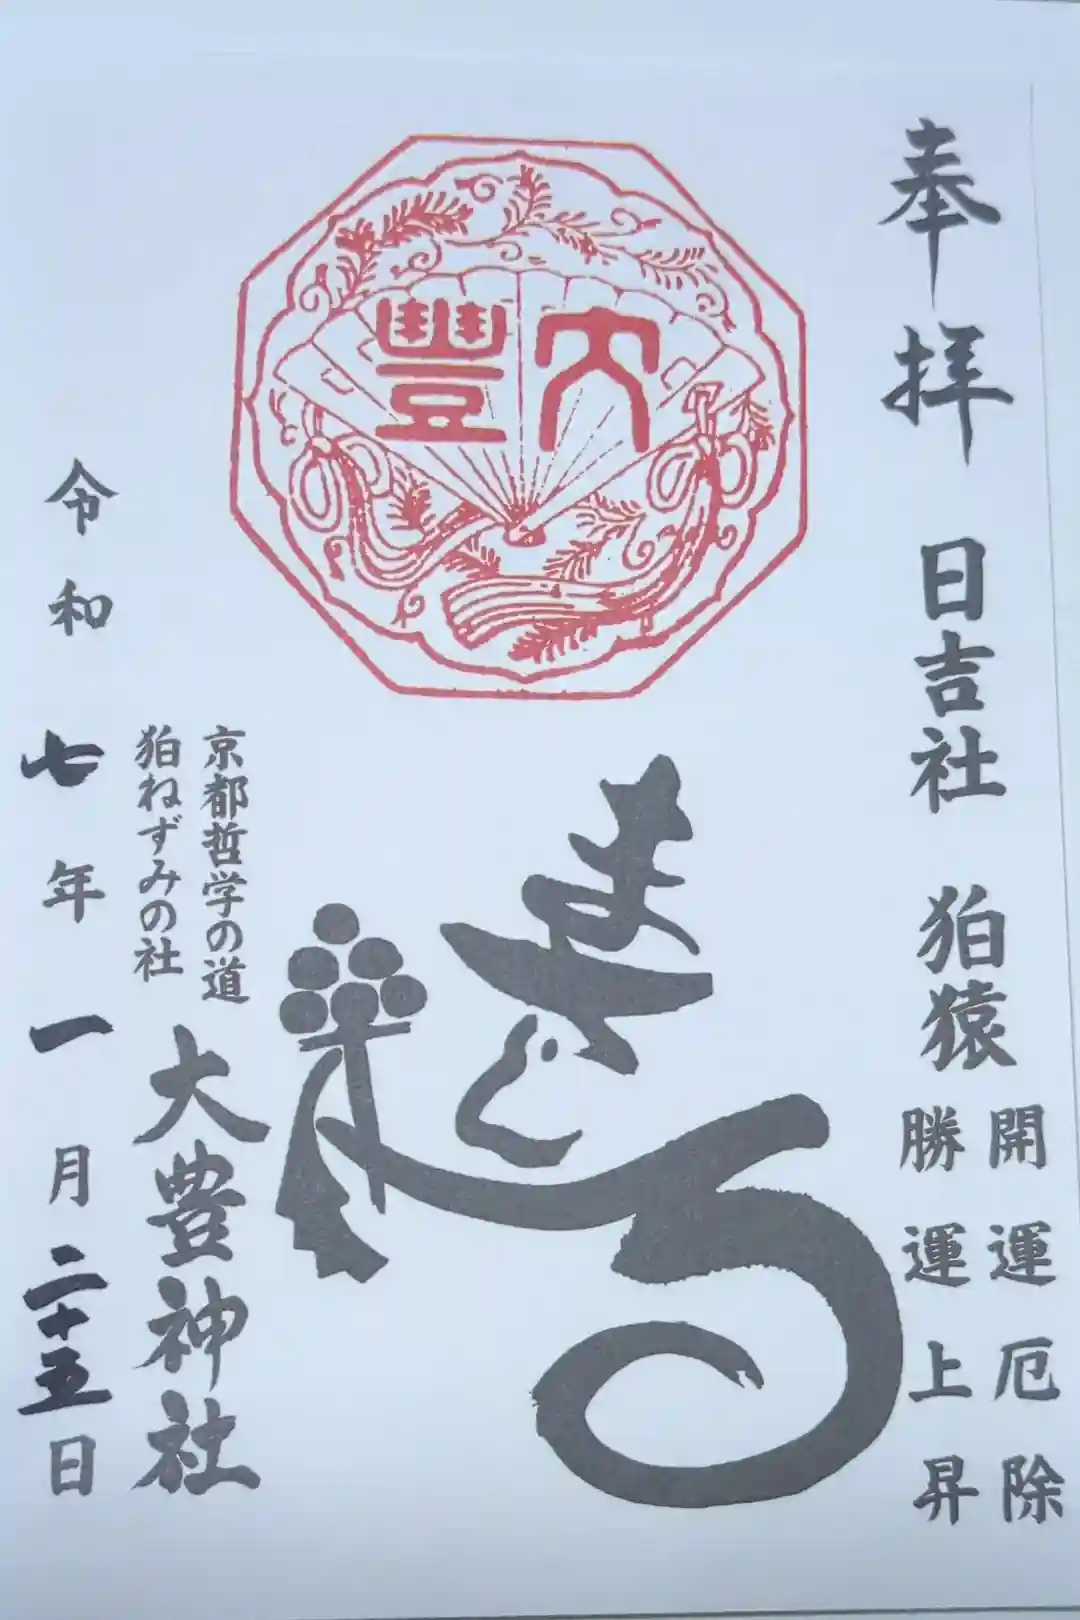 奉拝
日吉社
狛猿
開運厄除
勝運上昇
大豐
まさる
京都哲学の道
狛ねずみの社
大豊神社
令和七年一月二十五日